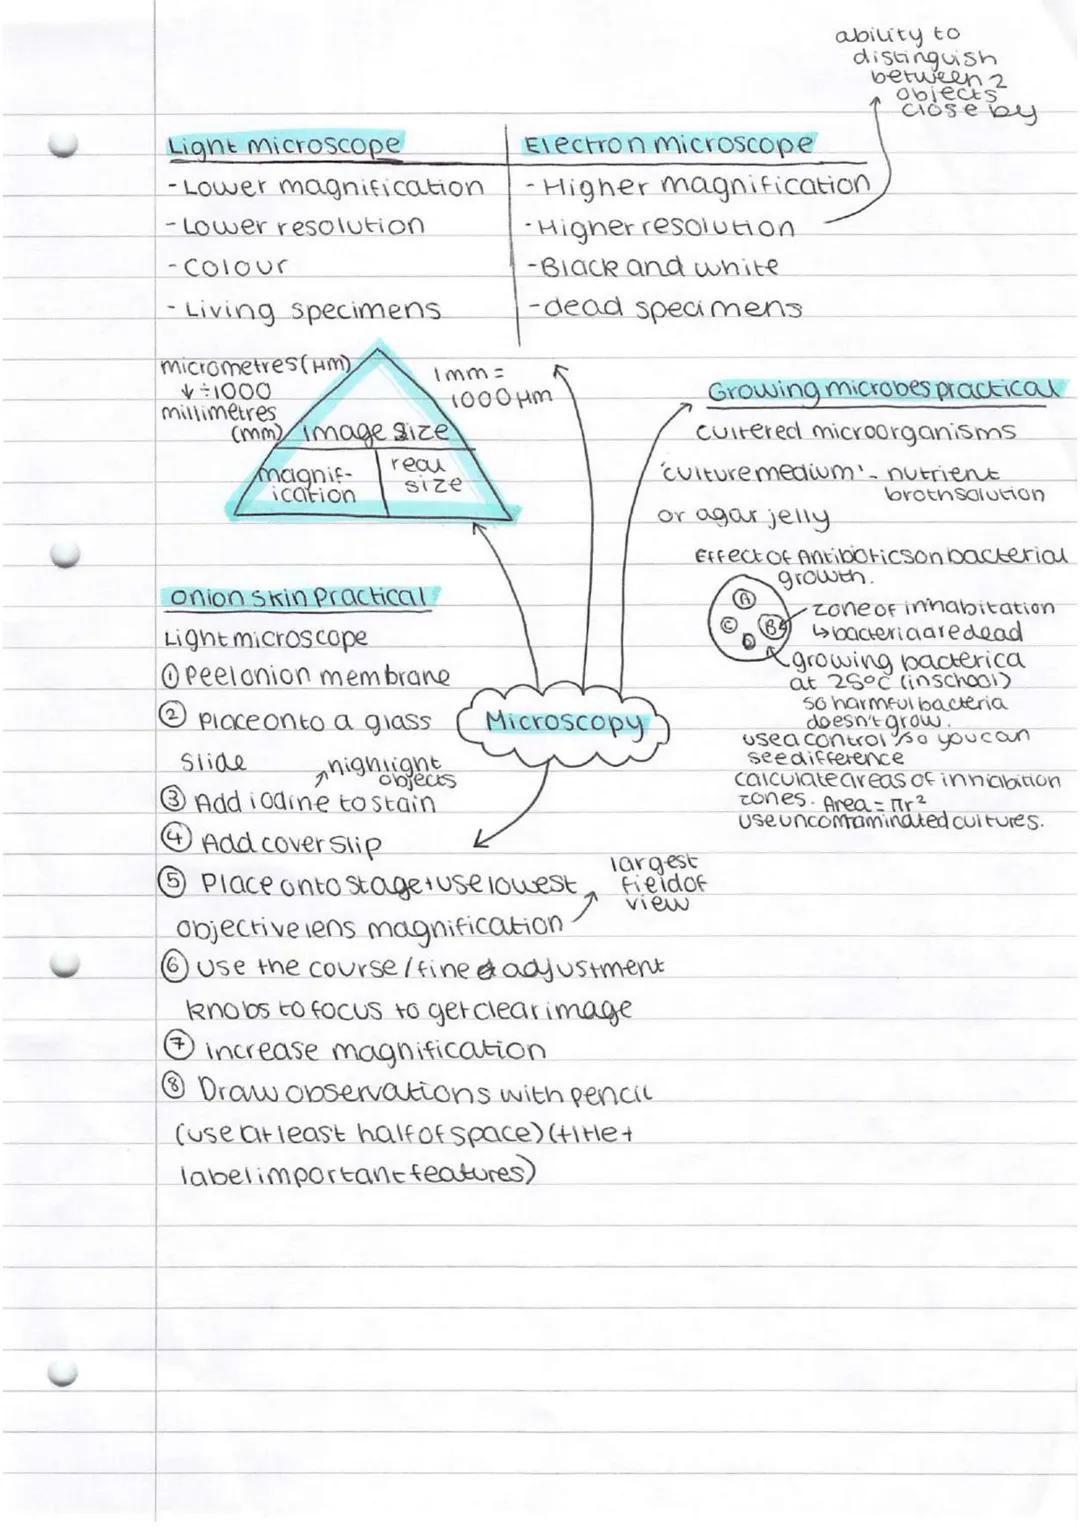 ability to
distinguish
between 2
objects
close by
Light microscope
- Lower magnification
- Lower resolution
- Colour
- Living specimens
Electron microscope
- Higher magnification
- Higher resolution
- Black and white
- dead specimens
micrometres (μm)
↓ ÷1000
millimetres
(mm)
1mm =
1000 μm
image size
magnif-
ication
real
size
Growing microbes practical
cultered microorganisms
'culture medium' - nutrient
broth solution
or agar jelly
Effect of Antibiotics on bacterial
growth.
A
B
C
D
zone of inhabitation
↳ bacteria are dead
growing bacterica
at 25°C (in school)
so harmful bacteria
doesn't grow.
use a control so you can
see difference
calculate areas of inhiabition
zones. Area = πr²
use uncontaminated cultures.
Onion skin Practical
Light microscope
① Peel onion membrane
② Place onto a glass
slide
highlight
objects
③ Add iodine to stain
④ Add cover slip
⑤ Place onto stage + use lowest
objective lens magnification
largest
field of
view
⑥ Use the course / fine adjustment
knobs to focus to get clear image
⑦ increase magnification
⑧ Draw observations with pencil
(use at least half of space) (title +
label important features)
Microscopy